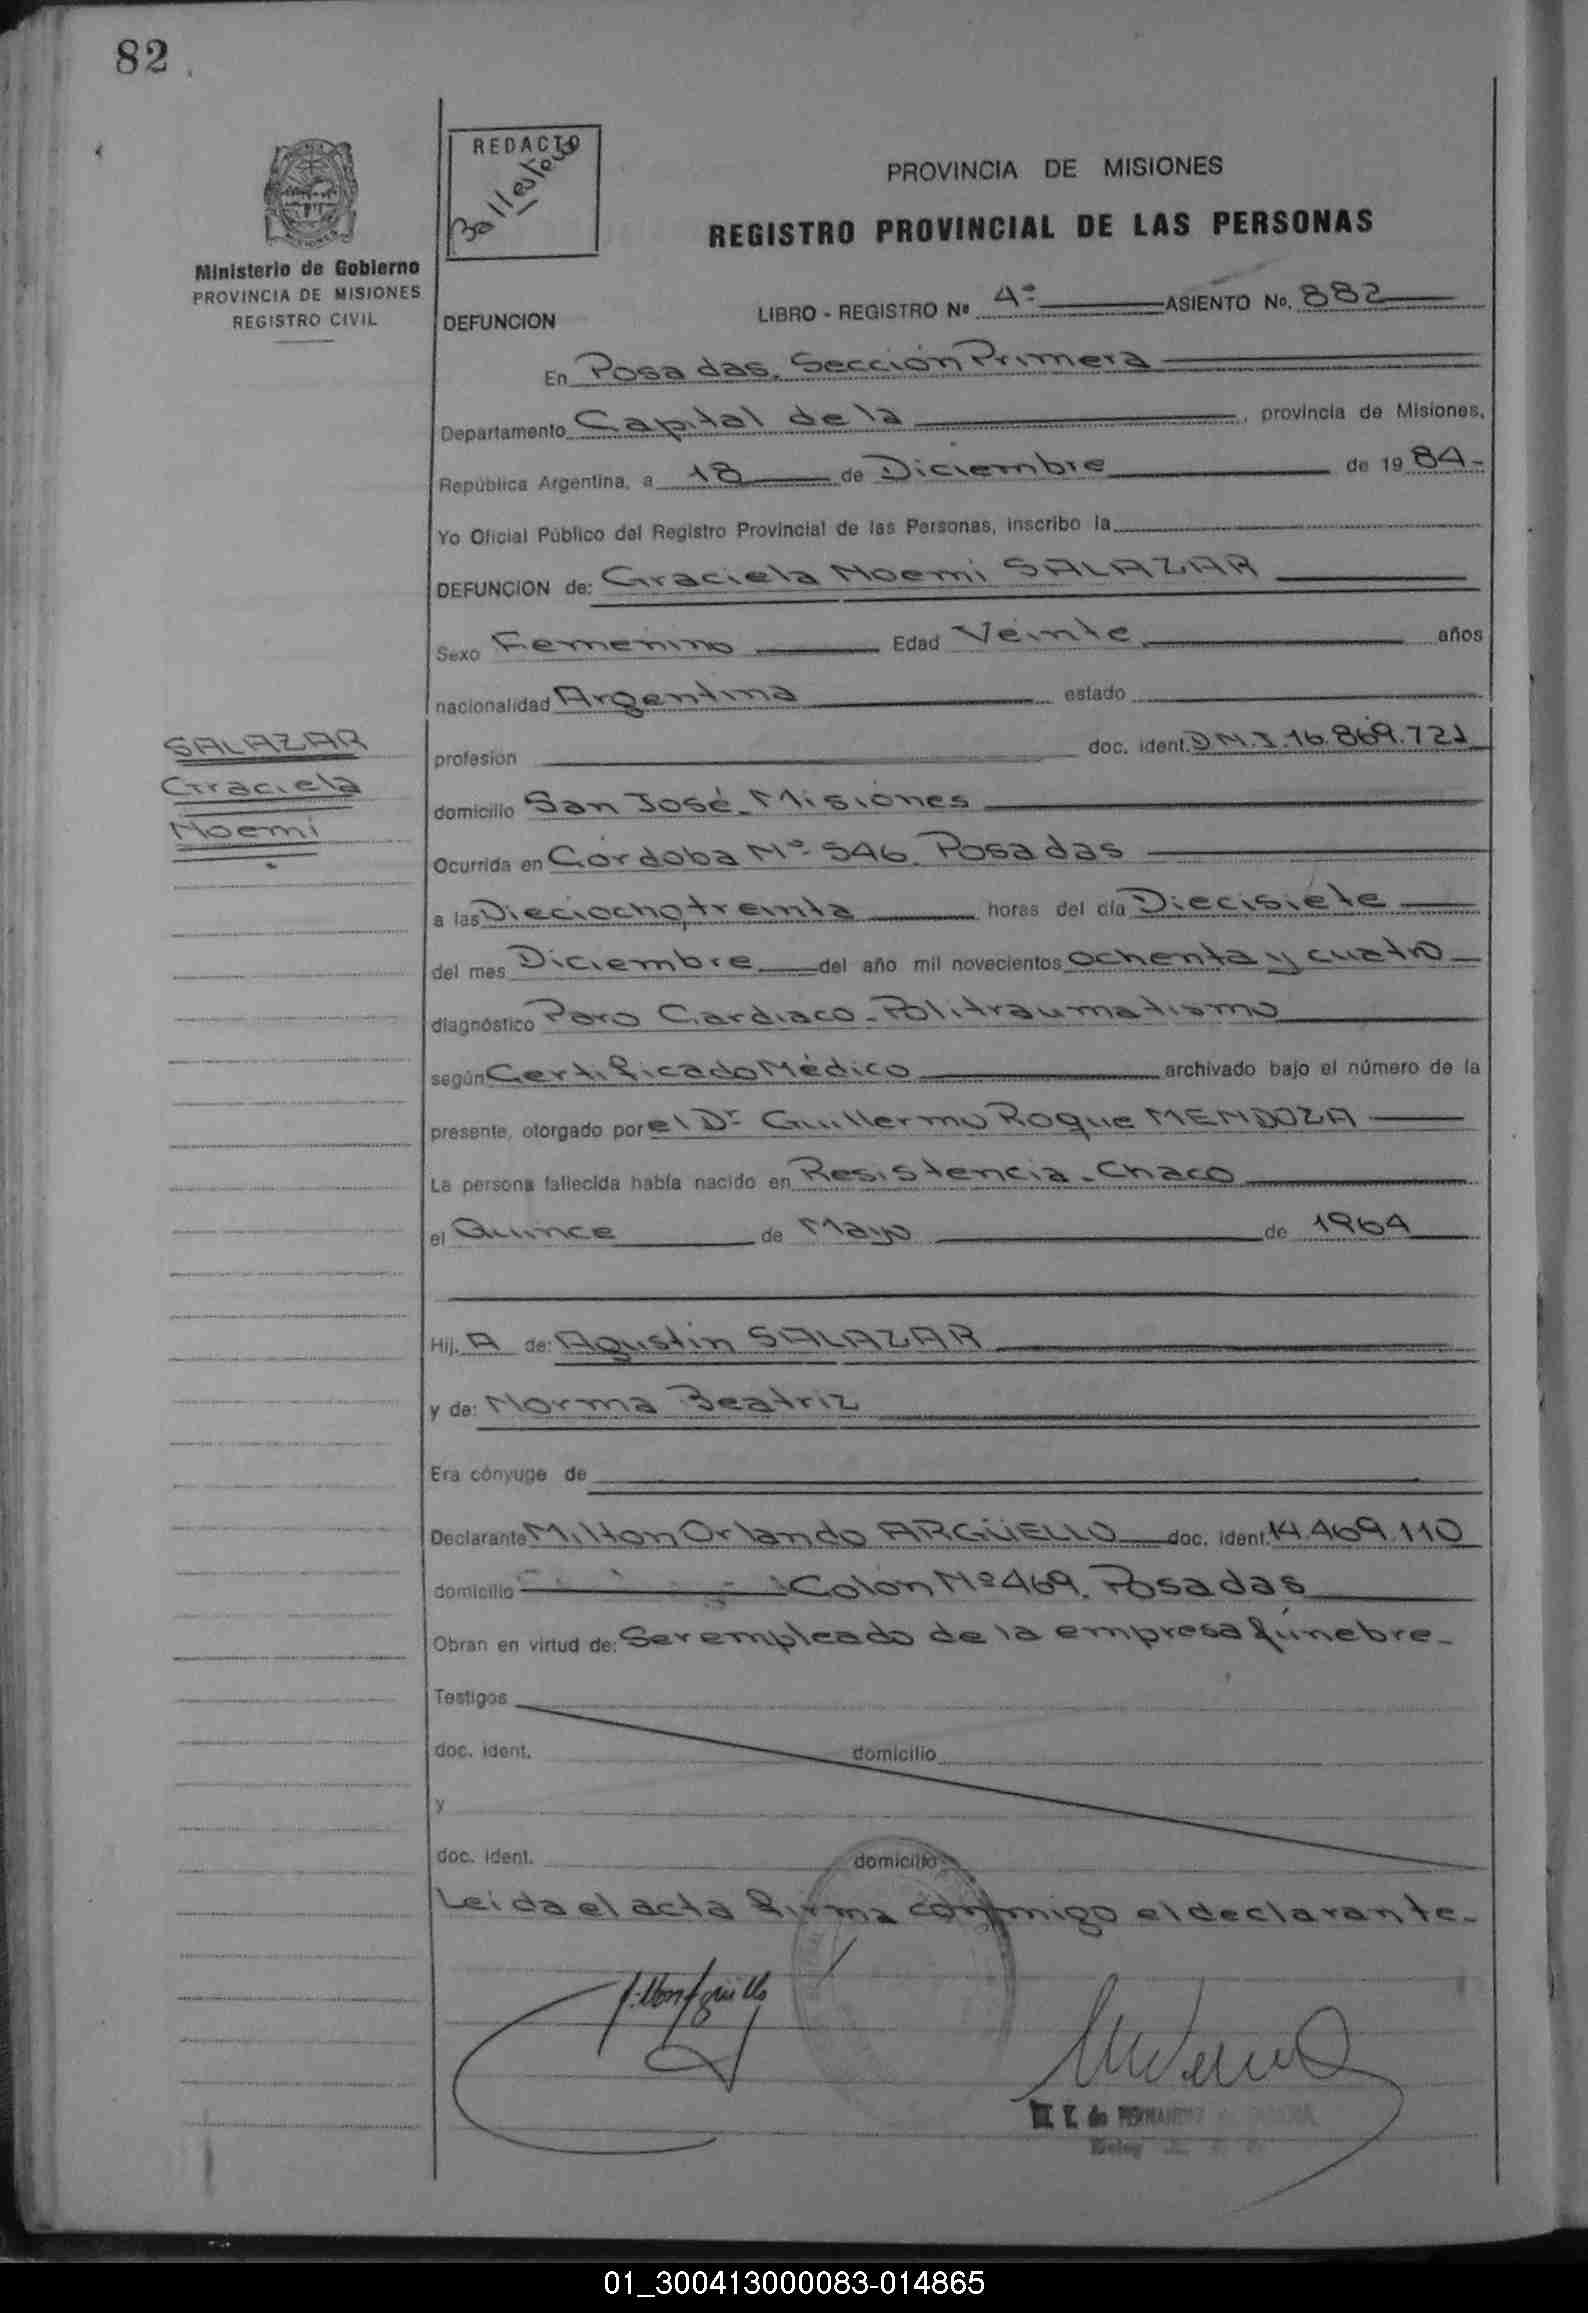 82
REDACTO
Ballestero
Ministerio de Gobierno
PROVINCIA DE MISIONES
REGISTRO CIVIL
PROVINCIA DE MISIONES
REGISTRO PROVINCIAL DE LAS PERSONAS
DEFUNCION LIBRO - REGISTRO Nº 4º ASIENTO No. 882
En Posadas. Sección Primera
Departamento Capital de la, provincia de Misiones,
República Argentina, a 18 de Diciembre de 1984-
Yo Oficial Público del Registro Provincial de las Personas, inscribo la
DEFUNCION de: Graciela Noemi SALAZAR
Sexo Femenino Edad Veinte años
nacionalidad Argentina estado
SALAZAR
Graciela
Noemi
profesion doc. ident. D.N.I. 16.869.721
domicilio San José - Misiones
Ocurrida en Córdoba Nº 546. Posadas
a las Dieciocho, treinta horas del día Diecisiete
del mes Diciembre del año mil novecientos ochenta y cuatro
diagnóstico Paro Cardiaco - Politraumatismo
según Certificado Médico archivado bajo el número de la
presente, otorgado por el Dr Guillermo Roque MENDOZA
La persona fallecida había nacido en Resistencia - Chaco
el Quince de Mayo de 1964
Hij. A de: Agustin SALAZAR
y de: Norma Beatriz
Era cónyuge de
Declarante Milton Orlando ARGÜELLO doc. ident. 14.469.110
domicilio Colón Nº 469. Posadas
Obran en virtud de: Ser empleado de la empresa fúnebre-
Testigos
doc. ident. domicilio
y
doc. ident. domicilio
Leida el acta firma conmigo el declarante-
01_300413000083-014865